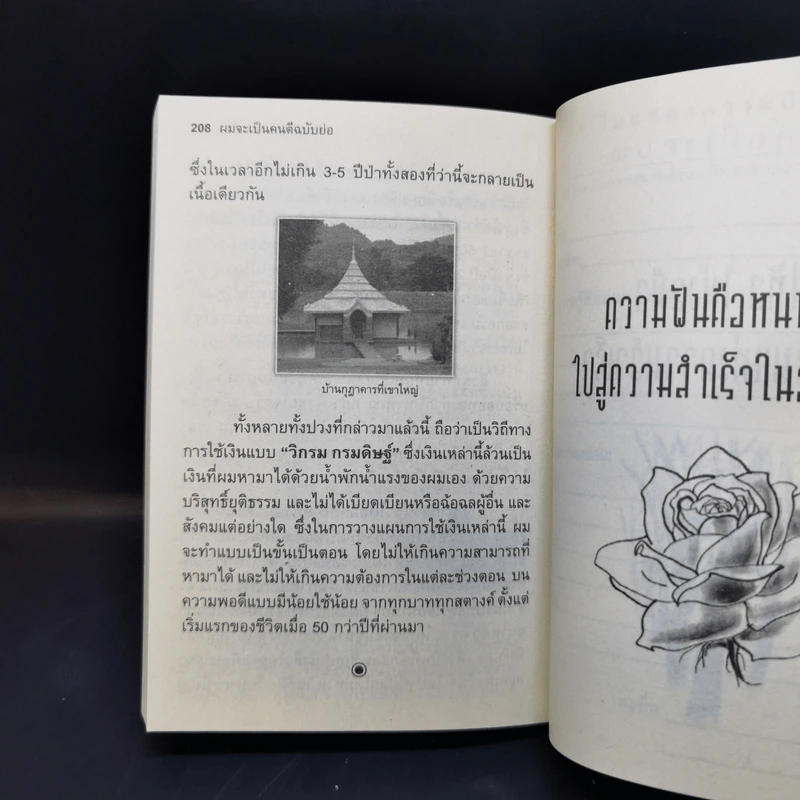 208 ผมจะเป็นคนดีฉบับย่อ
ซึ่งในเวลาอีกไม่เกิน 3-5 ปีป่าทั้งสองที่ว่านี้จะกลายเป็น
เนื้อเดียวกัน
บ้านกุฎาคารที่เขาใหญ่
ทั้งหลายทั้งปวงที่กล่าวมาแล้วนี้ ถือว่าเป็นวิถีทาง
การใช้เงินแบบ “วิกรม กรมดิษฐ์” ซึ่งเงินเหล่านี้ล้วนเป็น
เงินที่ผมหามาได้ด้วยน้ำพักน้ำแรงของผมเอง ด้วยความ
บริสุทธิ์ยุติธรรม และไม่ได้เบียดเบียนหรือฉ้อฉลผู้อื่น และ
สังคมแต่อย่างใด ซึ่งในการวางแผนการใช้เงินเหล่านี้ ผม
จะทำแบบเป็นขั้นเป็นตอน โดยไม่ให้เกินความสามารถที่
หามาได้ และไม่ให้เกินความต้องการในแต่ละช่วงตอน บน
ความพอดีแบบมีน้อยใช้น้อย จากทุกบาททุกสตางค์ ตั้งแต่
เริ่มแรกของชีวิตเมื่อ 50 กว่าปีที่ผ่านมา
ความฝันคือหน
ไปสู่ความสำเร็จใน